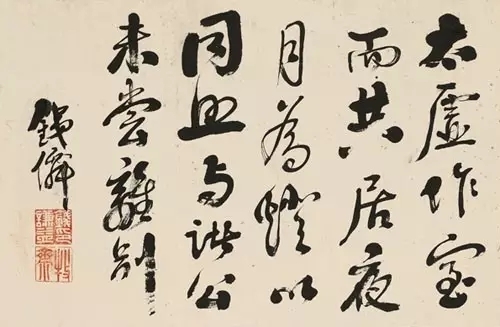 太虛作室
而共居夜
月為燈以
同照与諸公
未嘗離別